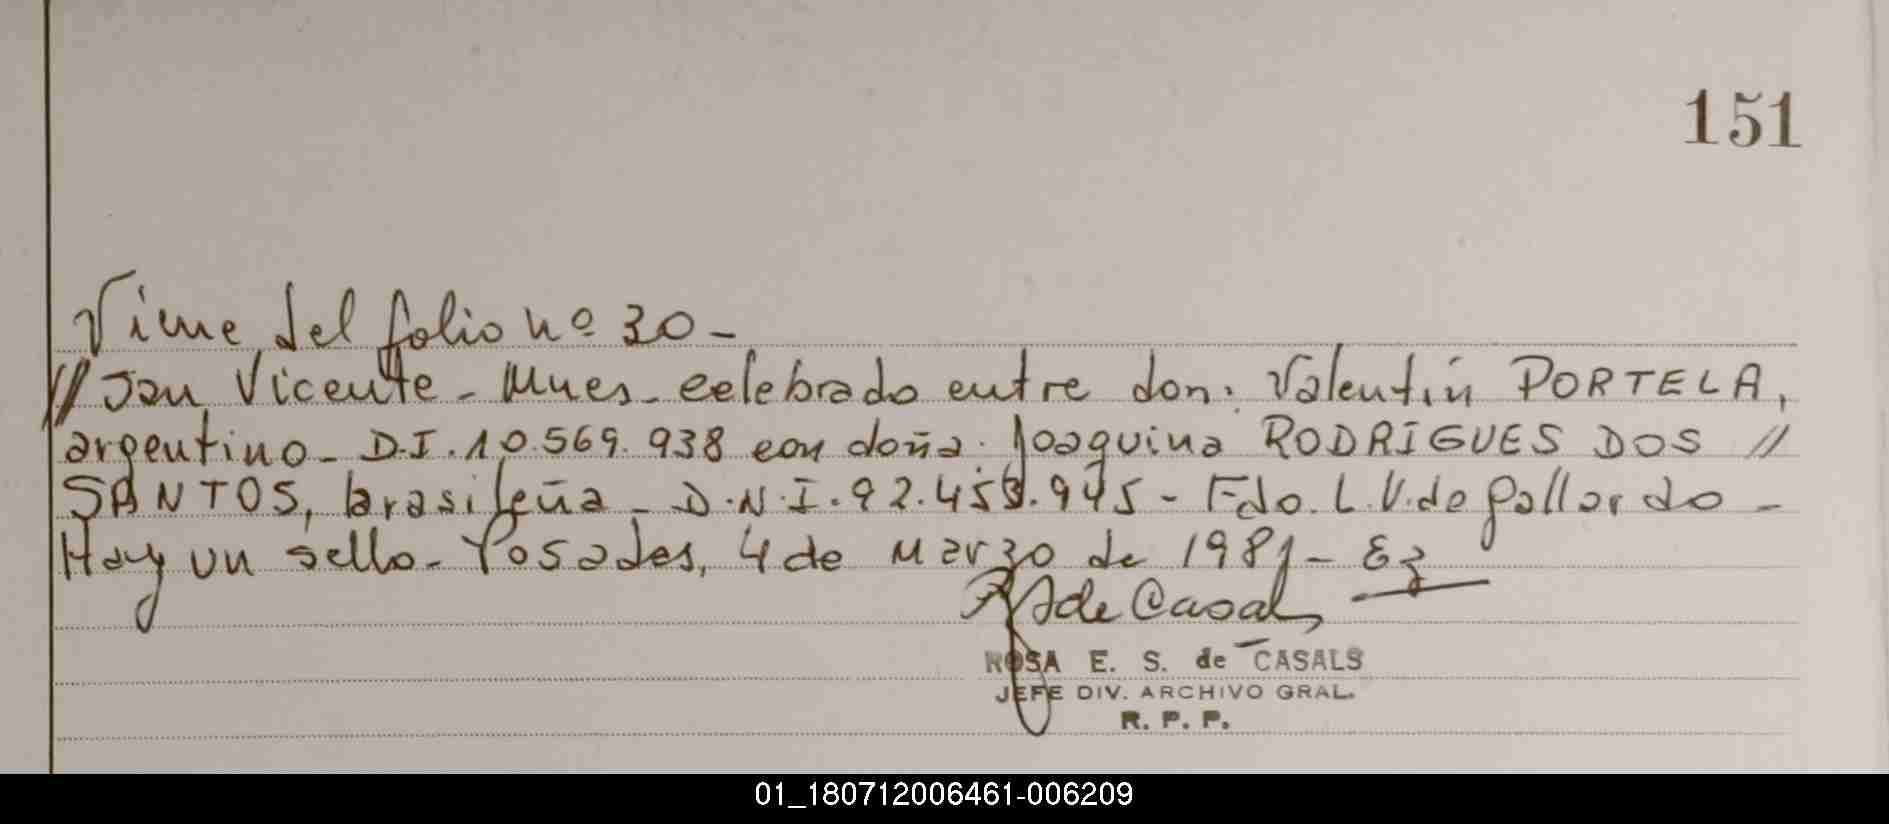 151
Viene del folio nº 30-
// San Vicente - Mnes - celebrado entre don: Valentín PORTELA,
argentino - D.I. 10.569.938 con doña: Joaquina RODRIGUES DOS //
SANTOS, brasileña - D.N.I. 92.459.945 - Fdo. L.V. de Gallardo -
Hay un sello - Posadas, 4 de Marzo de 1981 -
de Casals
ROSA E. S. de CASALS
JEFE DIV. ARCHIVO GRAL.
R. P. P.
01_180712006461-006209